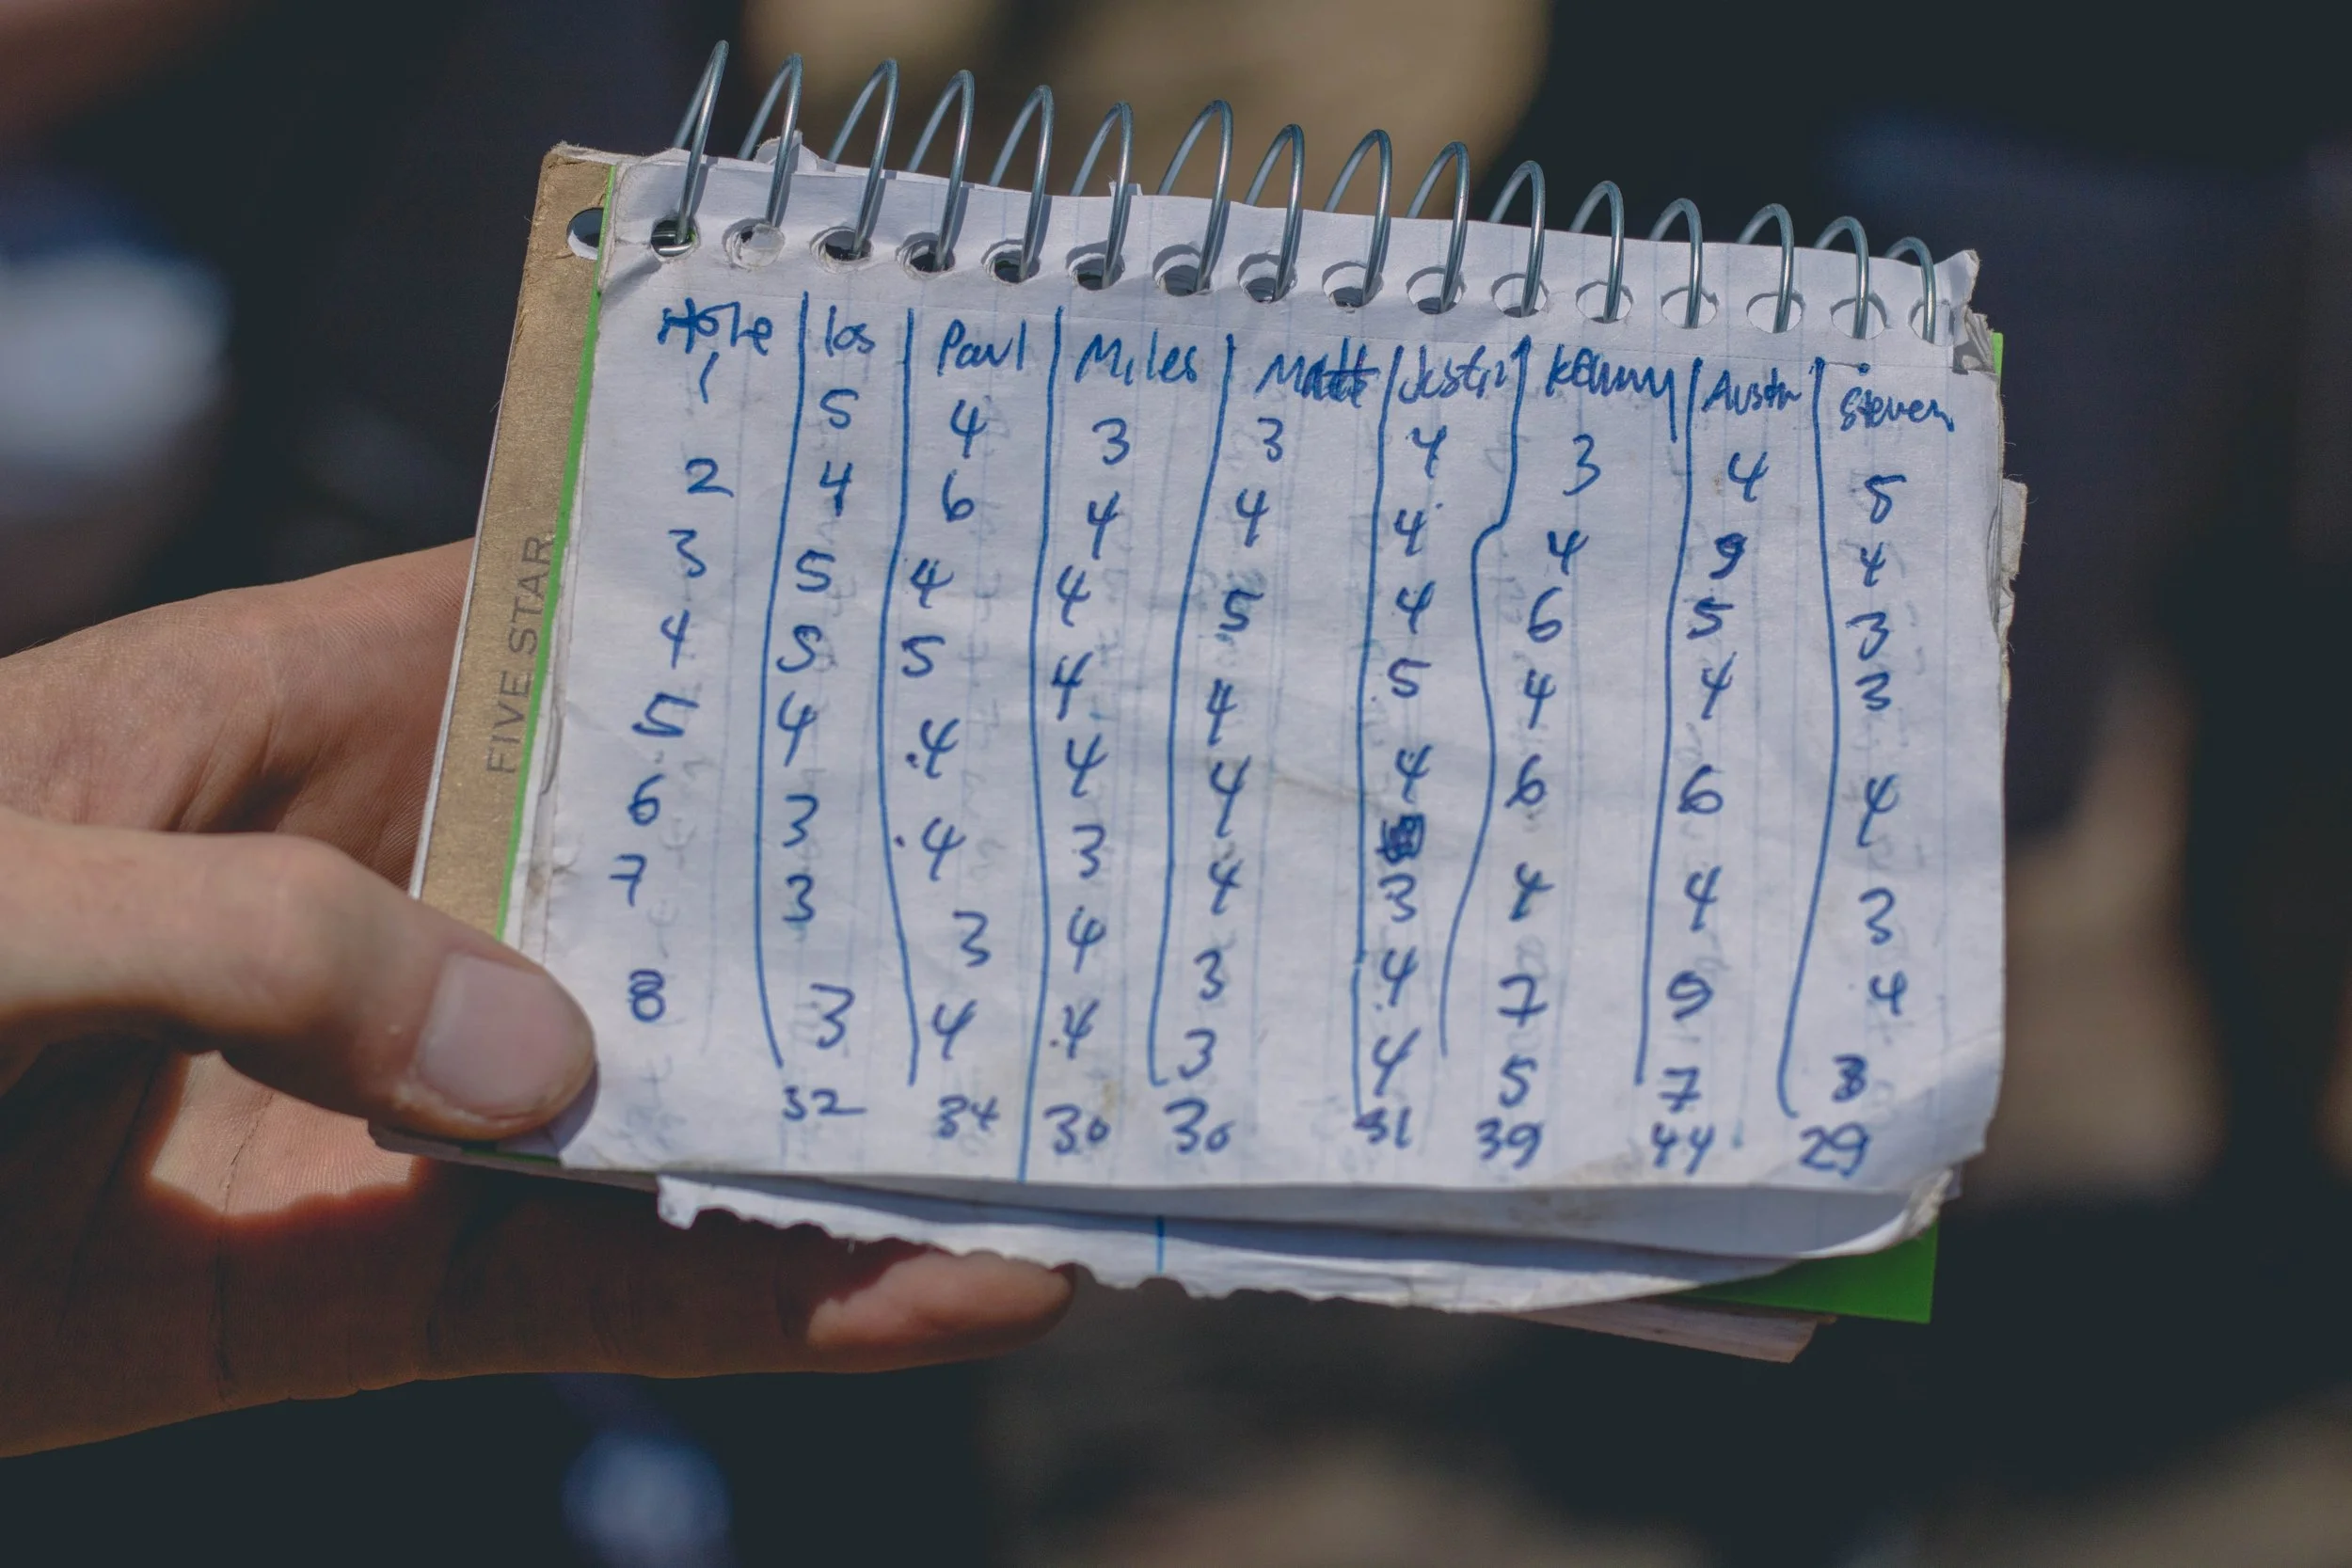 Hole los Paul Miles Matt Justin Kenny Austin Steven
1 5 4 3 3 4 3 4 5
2 4 6 4 4 4 4 9 4
3 5 4 4 5 4 6 5 3
4 5 5 4 4 5 4 4 3
5 4 4 4 4 4 6 6 4
6 3 4 3 4 3 4 4 3
7 3 3 4 3 4 7 5 4
8 3 4 4 3 4 5 7 3
32 34 30 30 31 39 44 29
FIVE STAR